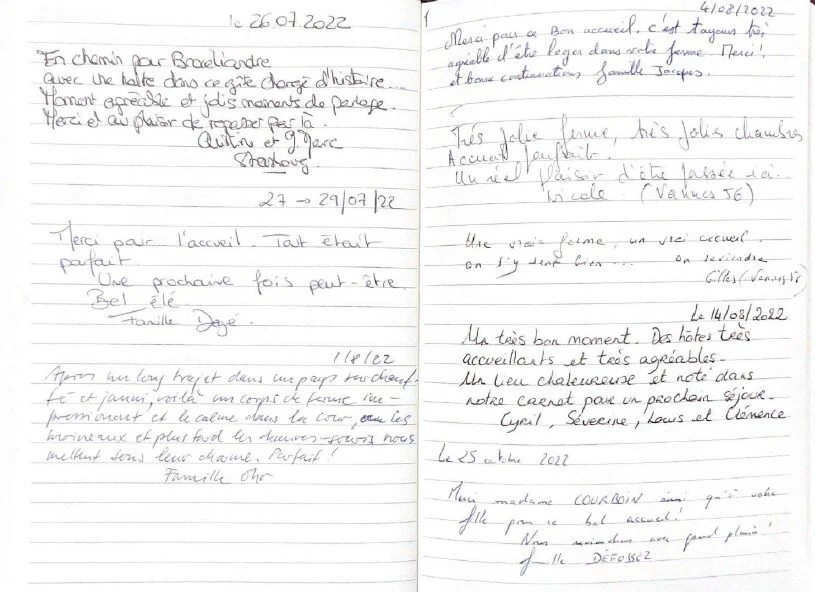 le 26.07.2022
En chemin pour Brocéliandre
avec une halte dans ce gîte chargé d'histoire...
Moment agréable et jolis moments de partage.
Merci et au plaisir de repasser par là.
et J. Marc
Strasbourg
27 → 29/07/22
Merci pour l'accueil. Tout était
parfait.
Une prochaine fois peut-être.
Bel été
Famille Dogé.
1/8/22
Après un long trajet dans un pays surchauf-
fé et jauni, voilà un corps de ferme im-
pressionnant et le calme dans la cour, les
moineaux et plus tard les chauves-souris nous
mettent sous leur charme. Parfait !
Famille
4/08/2022
Merci pour ce Bon accueil. c'est toujours très
agréable d'être loger dans votre ferme Merci!
et bonne continuation famille Jacques.
Très jolie ferme, très jolis chambres
Accueil parfait.
Un réel plaisir d'être passée ici..
Nicole. (Vannes 56)
Une vraie ferme, un vrai accueil.
on s'y sent bien... on reviendra
Gilles (Vannes 56)
Le 14/08/2022
Un très bon moment. Des hôtes très
accueillants et très agréables.
Un lieu chaleureuse et noté dans
notre carnet pour un prochain séjour.
Cyril, Séverine, Louis et Clémence
Le 25 octobre 2022
Merci madame COURBOIN ainsi qu'à votre
fille pour ce bel accueil!
Nous reviendrons avec grand plaisir!
famille DEFOSSEZ